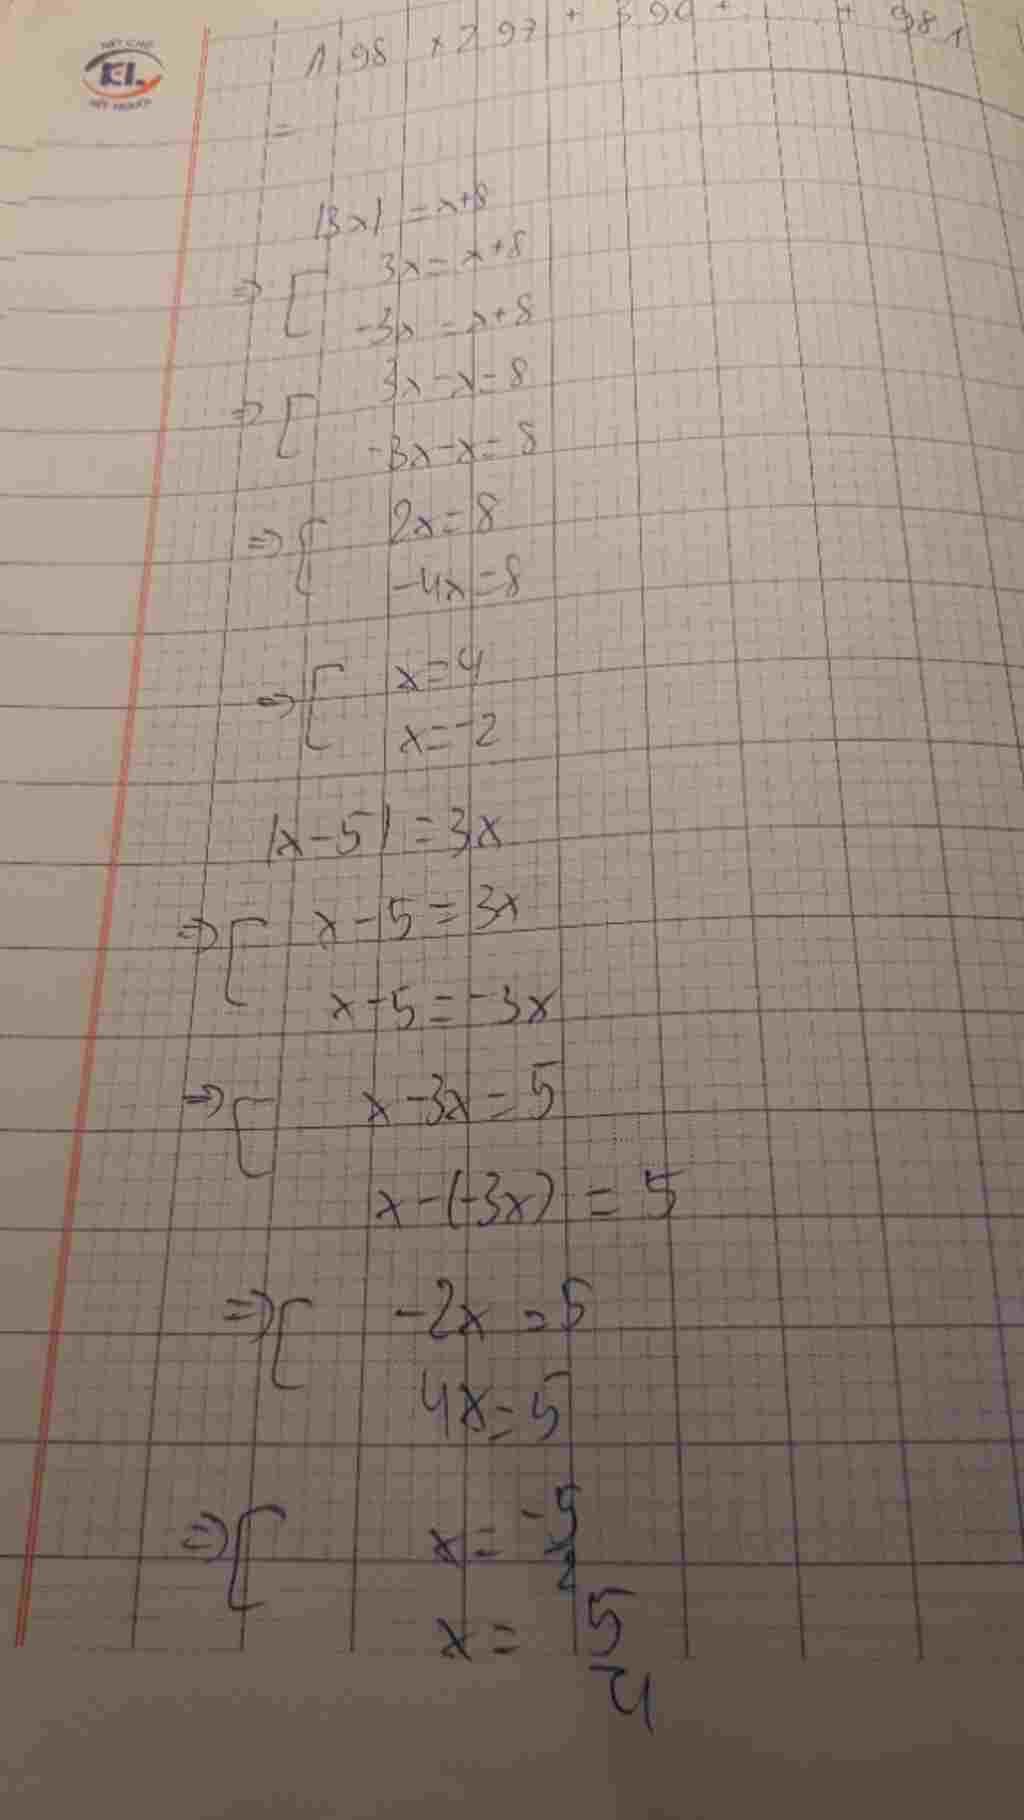 HẾT CHỮ
KL
HẾT NGƯỜI
1.98 + 2.97 + 3.96 + ... + 98.1
=
|3x| = x+8
⇒ [ 3x = x+8
-3x = x+8
⇒ [ 3x-x = 8
-3x-x = 8
⇒ [ 2x = 8
-4x = 8
⇒ [ x = 4
x = -2
|x-5| = 3x
⇒ [ x-5 = 3x
x-5 = -3x
⇒ [ x-3x = 5
x-(-3x) = 5
⇒ [ -2x = 5
4x = 5
⇒ [ x = -5/2
x = 5/4